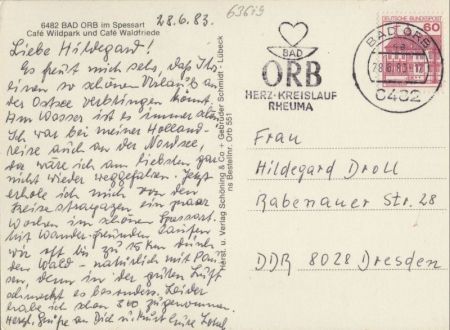 6482 BAD ORB im Spessart
Café Wildpark und Café Waldfriede
28.6.83.
63679
Liebe Hildegard!
Es freut mich sehr, daß Ihr
einen so schönen Urlaub an
der Ostsee verbringen könnt.
Am Wasser ist es immer
Ich war bei meiner Holland-
reise auch an der Nordsee,
da wäre ich am liebsten gar
nicht wieder weggefahren. Jetzt
erhole ich mich von den
Reisestrapazen ein paar
Wochen im schönen Spessart.
Mit Wanderfreunden laufen
wir oft bis zu 15 km durch
den Wald - natürlich mit Pau-
sen, denn in der guten Luft
schmeckt es besonders. Leider
habe ich schon zugenommen.
Herzl. Grüße an Dich u. Kurt Eure
Herst. u. Verlag Schöning & Co + Gebrüder Schmidt - Lübeck
Bestellnr. Orb 551
BAD
ORB
HERZ-KREISLAUF
RHEUMA
DEUTSCHE BUNDESPOST
60
BAD ORB
28.6.83-12
6482
Frau
Hildegard Droll
Rabenauer Str. 28
DDR 8028 Dresden